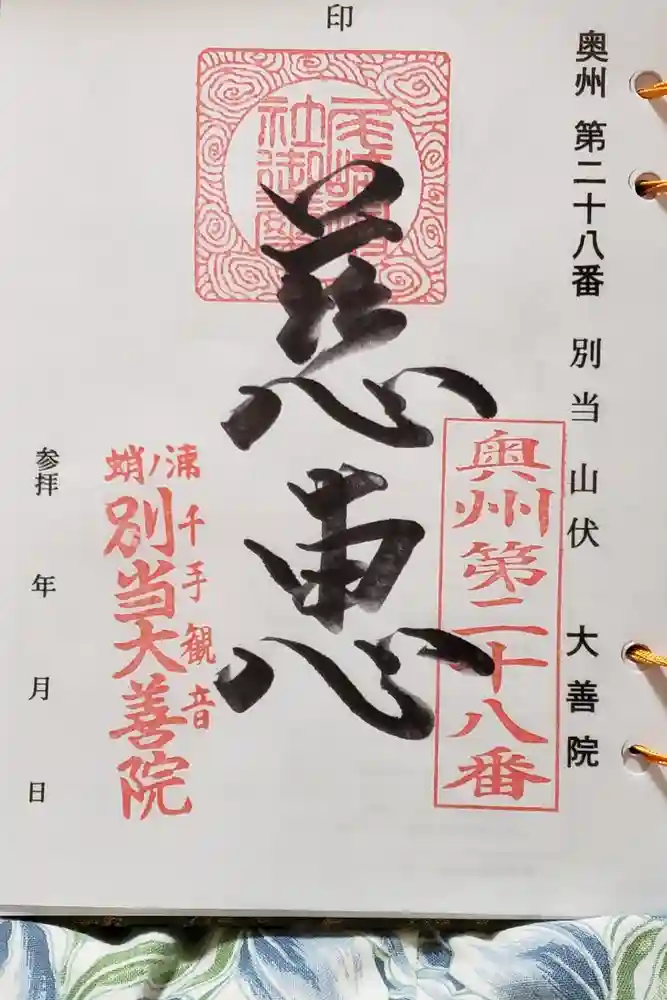 印
奥州 第二十八番 別当 山伏 大善院
奥州第二十八番
慈恵
浦千手観音
蛸ノ
別当大善院
参拝 年 月 日